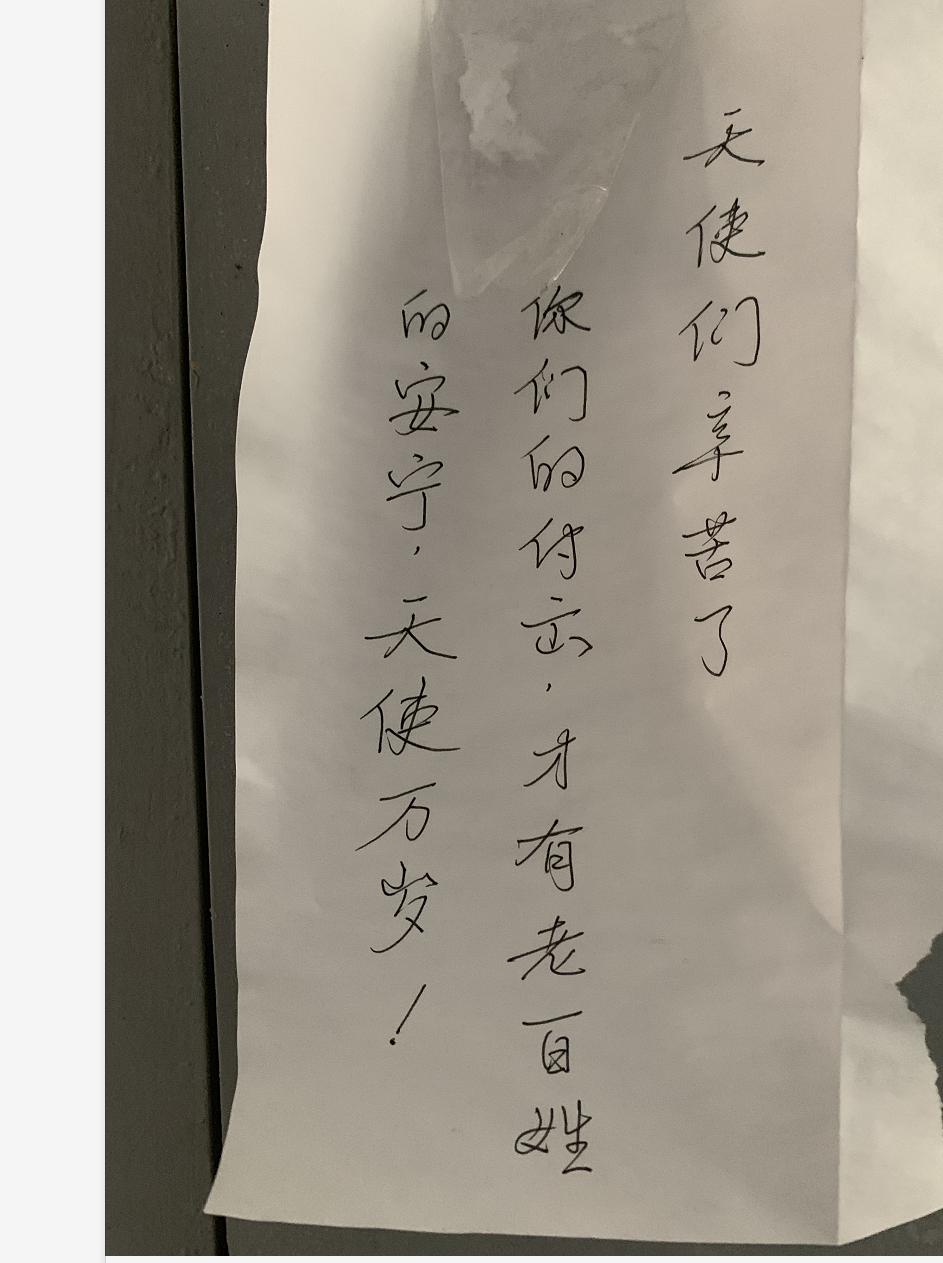 天使们辛苦了
你们的付出,才有老百姓
的安宁,天使万岁!